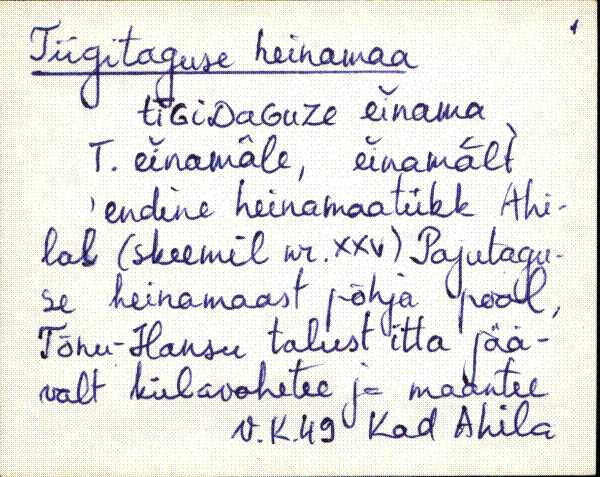 1
Tiigitaguse heinamaa
tīGiDaGuze eĭnama
T. eĭnamâle, eĭnamâlt̀
'endine heinamaatükk Ahi-
lal (skeemil nr. XXV) Pajutagu-
se heinamaast põhja pool,
Tõnu-Hansu talust itta jää-
valt külavahetee ja maantee
V.K.49 Kad Ahila